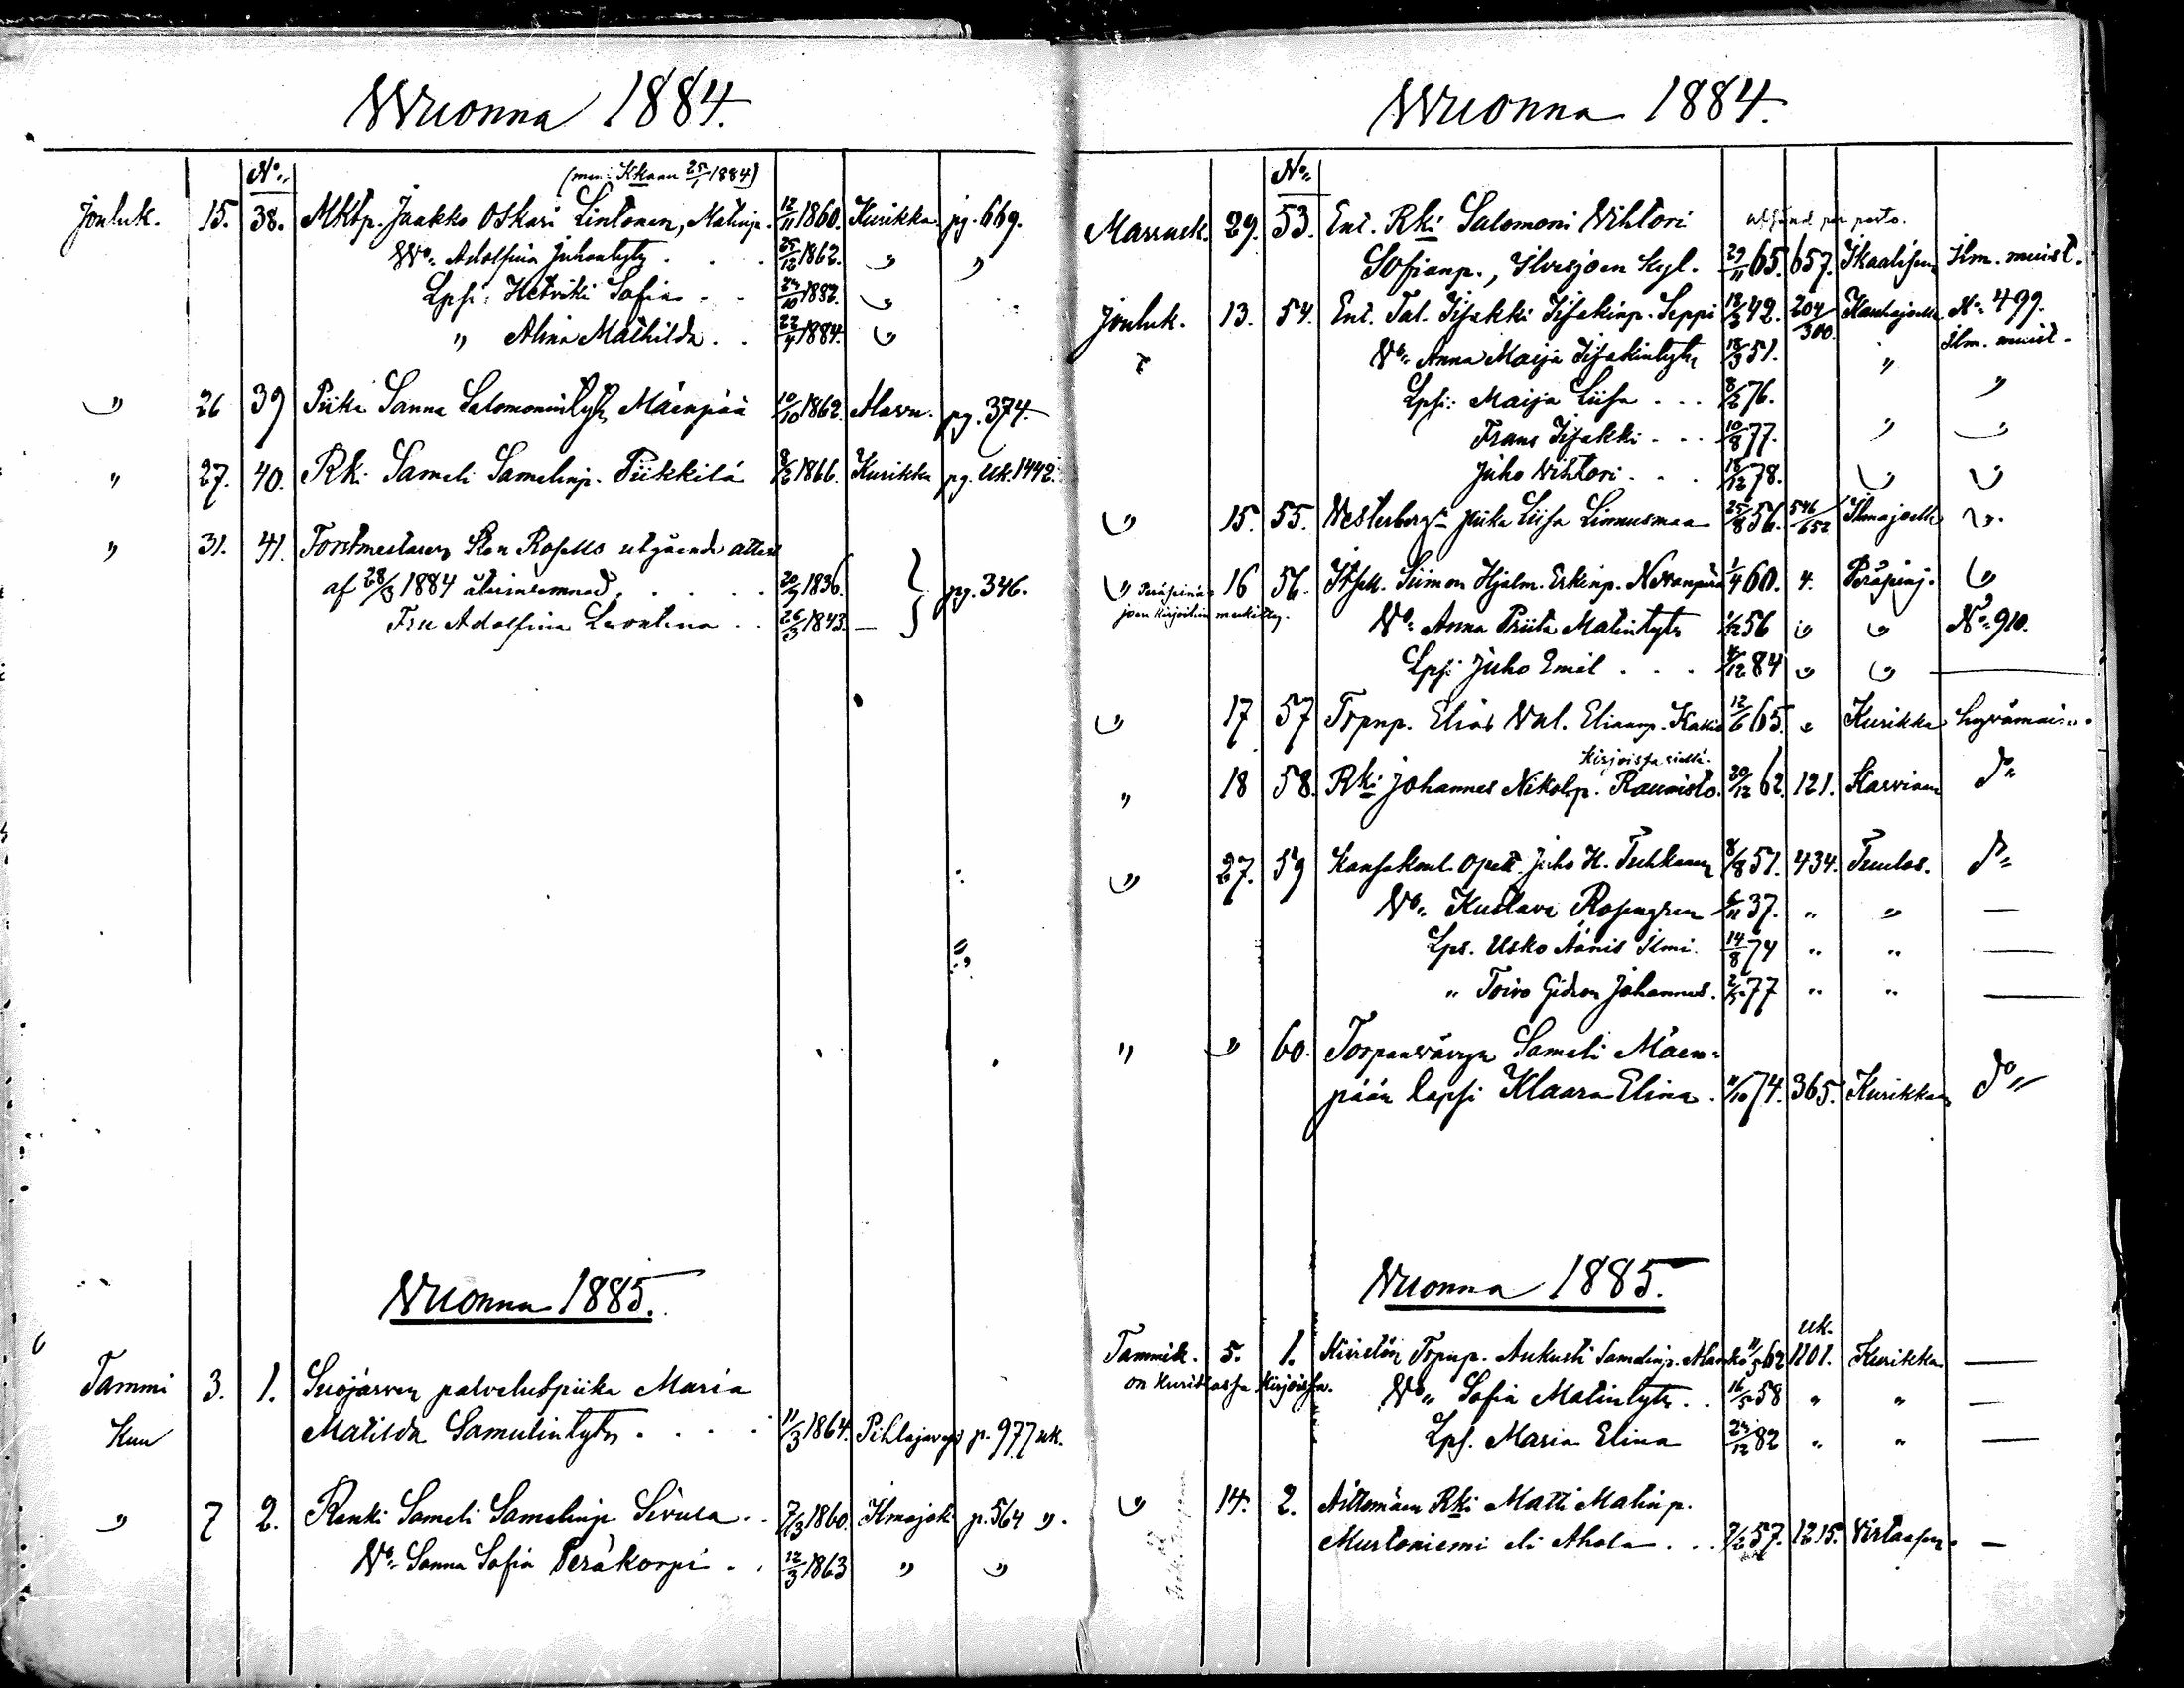 Wuonna 1884.
No
(men. Kkaan 25/1 1884)
Jouluk. 15. 38. Mktp. Jaakko Oskari Lintonen, Matinp. 12/11 1860. Kurikka. pg. 669.
Wo Adolfina Juhontytr . . . 25/12 1862. " "
Lpsi: Hetvikki Sofia . . 1882. "
" Alina Mathilda . . 22/4 1884. "
" 26 39 Piika Sanna Salomonintytr Mäenpää 10/10 1862. Alavu. pg. 374.
" 27. 40. Rki Sameli Samelinp. Piikkilä 8/2 1866. Kurikka pg. Uk. 1442.
" 31. 41. Forstmestaren Sten Rosells utgående attest
af 28/3 1884 återinlemnad . . . . . 20/7 1836. pg. 346.
Fru Adolfina Leontina . . 26/3 1843. —
Vuonna 1885.
Tammi 3. 1. Suojärven palveluspiika Maria
Kuu Matilda Samulintytr . . . . 11/3 1864. Pihlajavesi p. 977 uk.
" 7 2. Renki Sameli Samelinp. Sivula . . 7/3 1860. Ilmajoki p. 564 ".
Wo Sanna Sofia Peräkorpi . . 12/3 1863 " "
Wuonna 1884.
No
Marrask. 29. 53. Ent. Rki Salomoni Vihtori utsänd per posto.
Sofianp., Ilvesjoen kyl. 29/11 65. 657. Ikaalisen Ilm. muist.
Jouluk. 13. 54. Ent. Tal. Iisakki Iisakinp. Seppi 18/3 42. 204/300. Kauhajoelle No 499.
" Wo Anna Maija Iisakintytr 18/3 51. " Ilm. muist.
Lpsi: Maija Liisa . . . 8/2 76. "
Frans Iisakki . . . 10/8 77. " "
Juho Vihtori . . . 18/12 78. " "
" 15. 55. Westerberg piika Liisa Linnusmaa 25/8 56. 546/652 Ilmajoelle ".
" 16 56. Itsell. Siimon Hjalm. Erkinp. Nevanperä 1/4 60. 4. Peräseinj. "
Peräseinäjoen kirjoihin merkitty.
Wo Anna Priita Matintytr 1/12 56 " " No 910.
Lpsi Juho Emil . . . 4/12 84 " " —
" 17 57 Torp.np. Elias Val. Eliaanp. 12/6 65. " Kurikka hyvämain.
kirjoissa siellä.
" 18 58. Rki Johannes Nikol.p. Raunisto. 20/12 62. 121. Karvian do
" 27. 59 Kansakoul. Opett. Juho H. Tuhkanen 8/8 51. 434. Tuulos. do
Wo Kustava Rosengren 6/11 37. " " —
Lps. Usko Äänis Ilmi. 14/8 74 " " —
" Toivo Gideon Johannes. 2/5 77 " " —
" " 60. Torpanvävyn Sameli Mäen=
pään lapsi Klaara Elina . 11/10 74. 365. Kurikkan do
Vuonna 1885.
uk.
Tammik. 5. 1. Kivistön Torp.np. Aukusti Samelinp. Alanko 11/3 62 1201. Kurikka —
on Kurikassa kirjoissa. Wo Sofia Matintytr . . 16/5 58 " " —
Lps. Maria Elina 24/12 82 " " —
" 14. 2. Aittomäen Rki Matti Matinp.
Murtoniemi eli Ahola . . . 7/2 57. 1215. Virtaisen. —